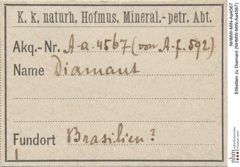 K. k. naturh. Hofmus. Mineral.-petr. Abt.
Akq.-Nr. A.a. 4567 (von A.f. 592)
Name Diamant
Fundort Brasilien?
Etiketten zu Diamant (NHMW-MIN-Aa4567)
NHMW-MIN-Aa4567